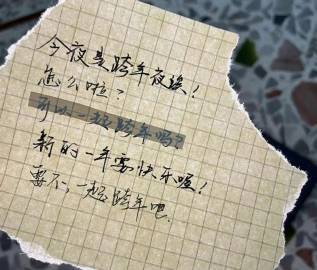 今夜是跨年夜诶！
怎么啦？
可以一起跨年吗？
新的一年要快乐喔！
要不,一起跨年吧.